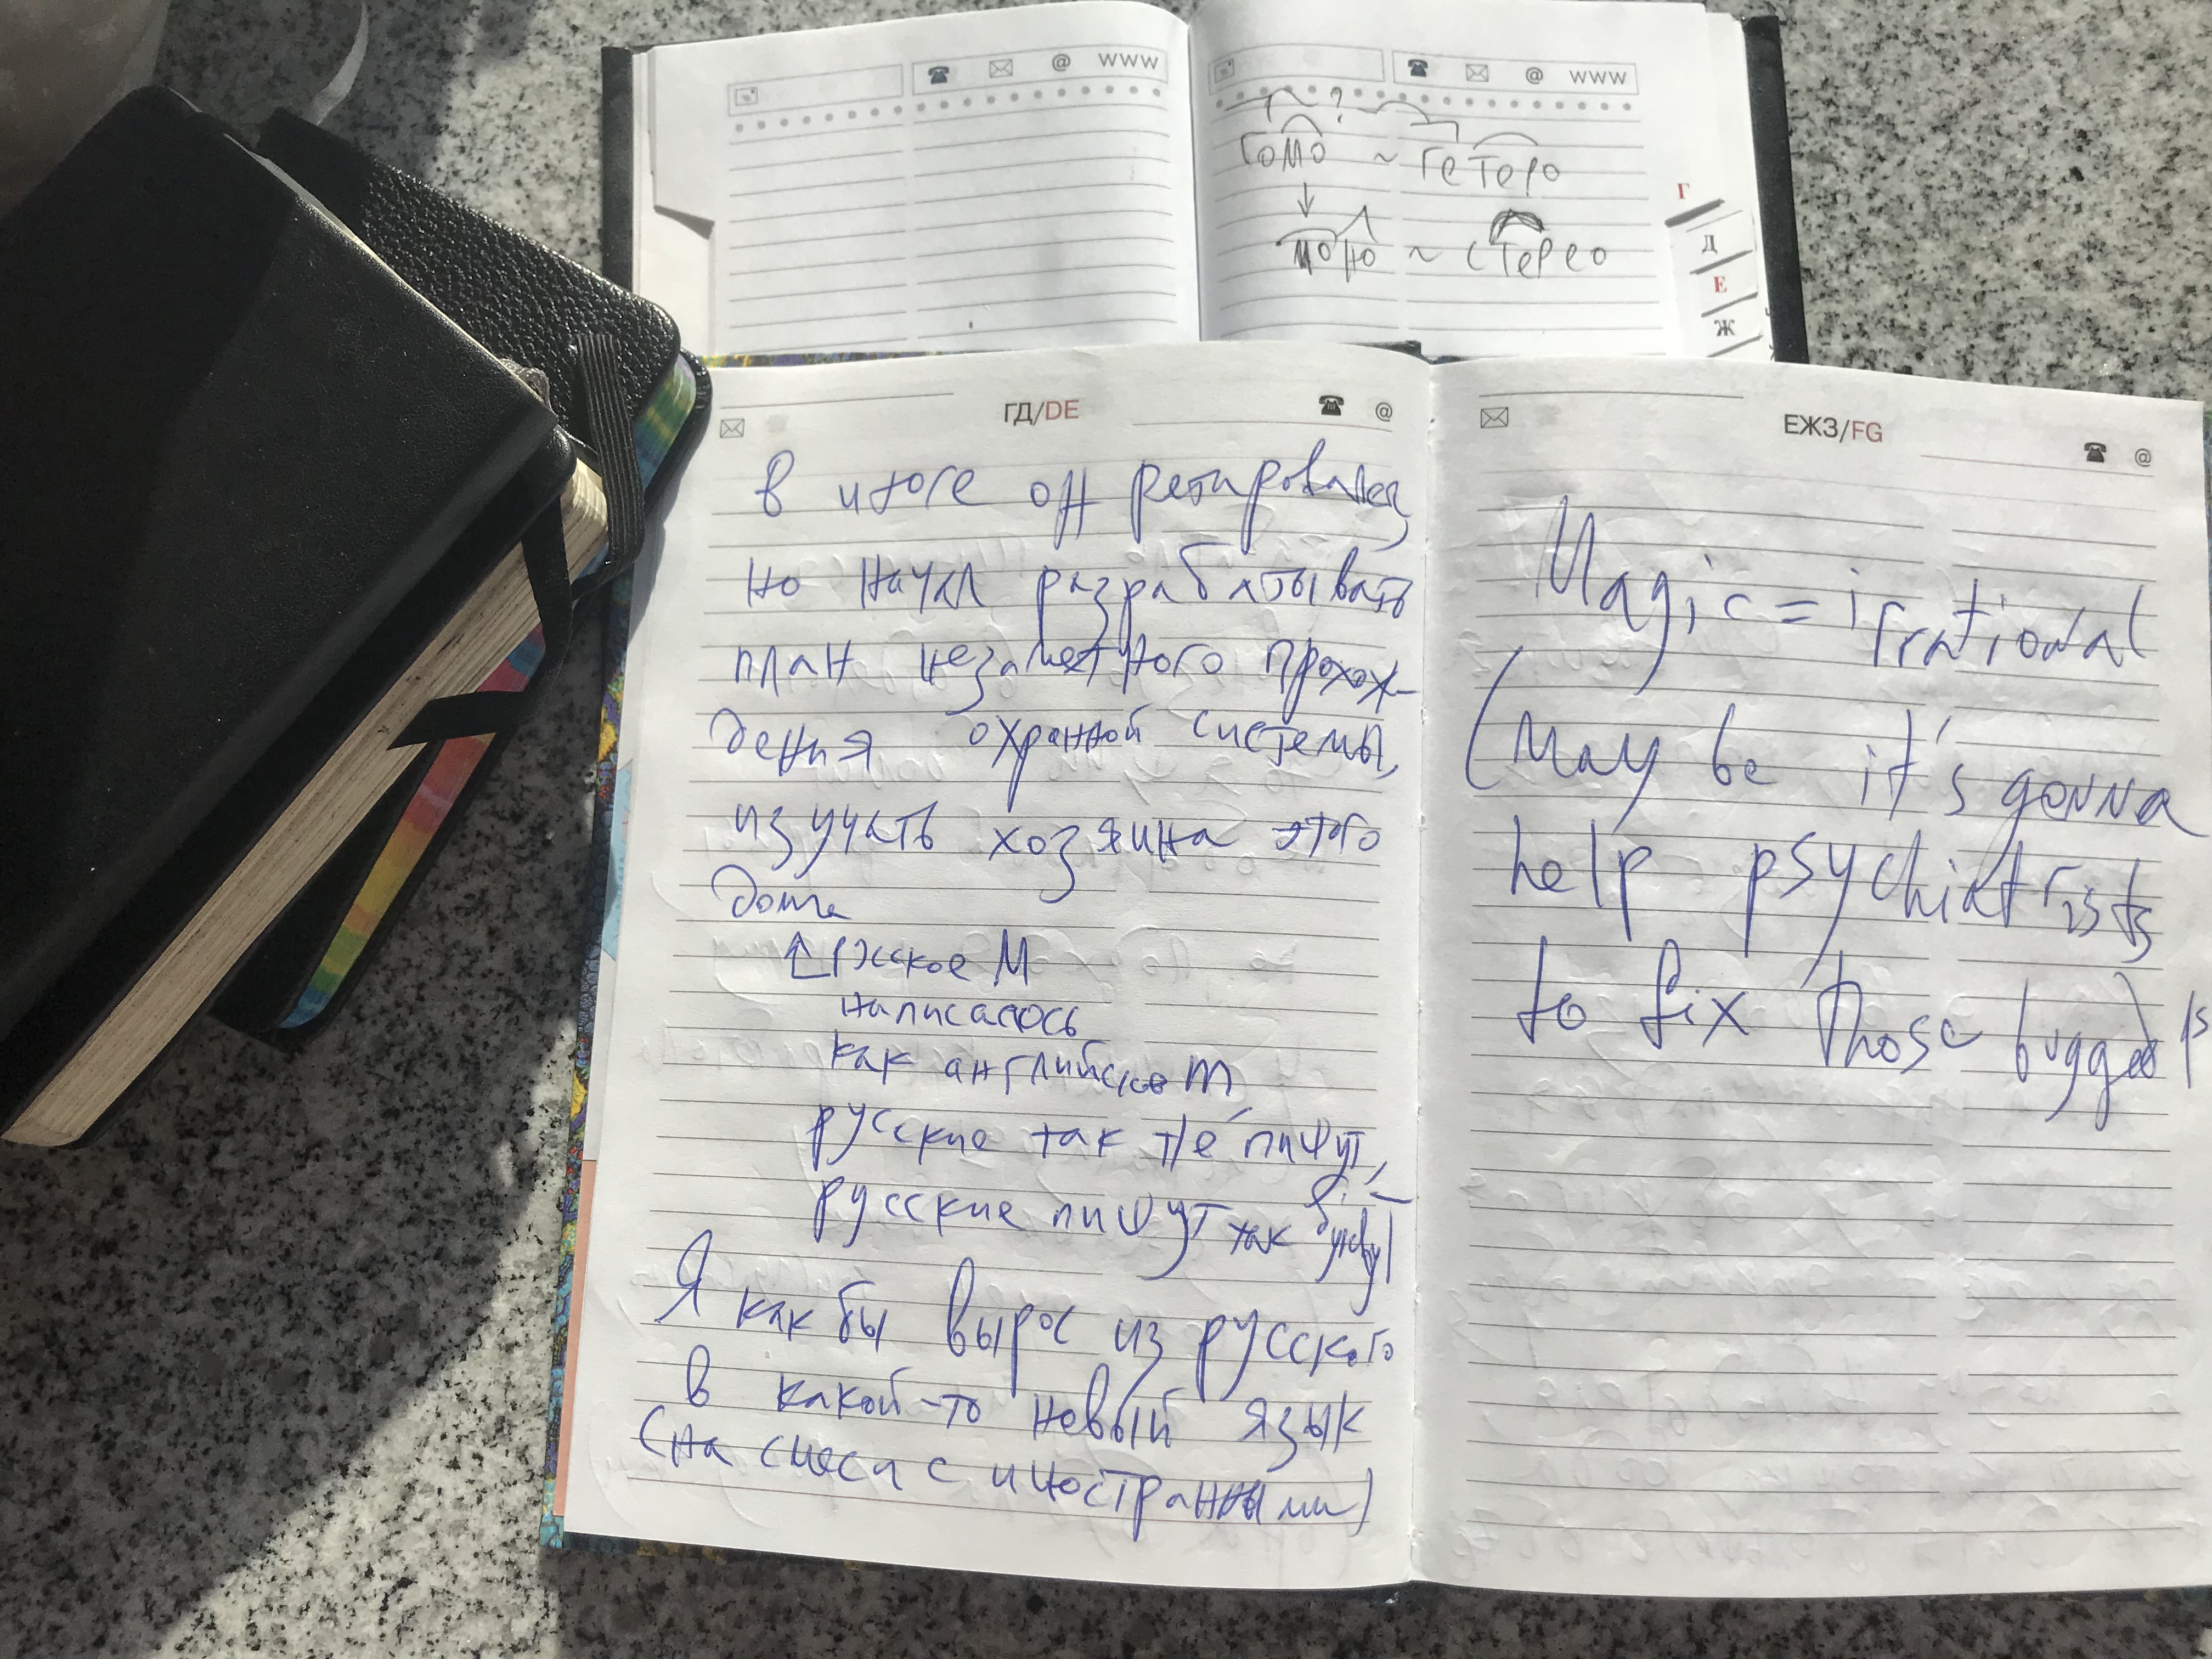 ☎ ✉ @ WWW
☎ ✉ @ WWW
?
ГОМО ~ ГЕТЕРО
↓
МОНО ~ СТЕРЕО
Г
Д
Е
Ж
ГД/DE
☎ @
в итоге он ретировался
но начал разрабатывать
план незаметного прохож-
дения охранной системы,
изучать хозяина этого
дома
↑ русское М
написалось
как английское m
русские так не пишут,
русские пишут так букву
Я как бы вырос из русского
в какой-то новый язык
(на смеси с иностранными)
ЕЖЗ/FG
☎ @
Magic = irrational
(may be it's gonna
help psychiatrists
to fix those bugged